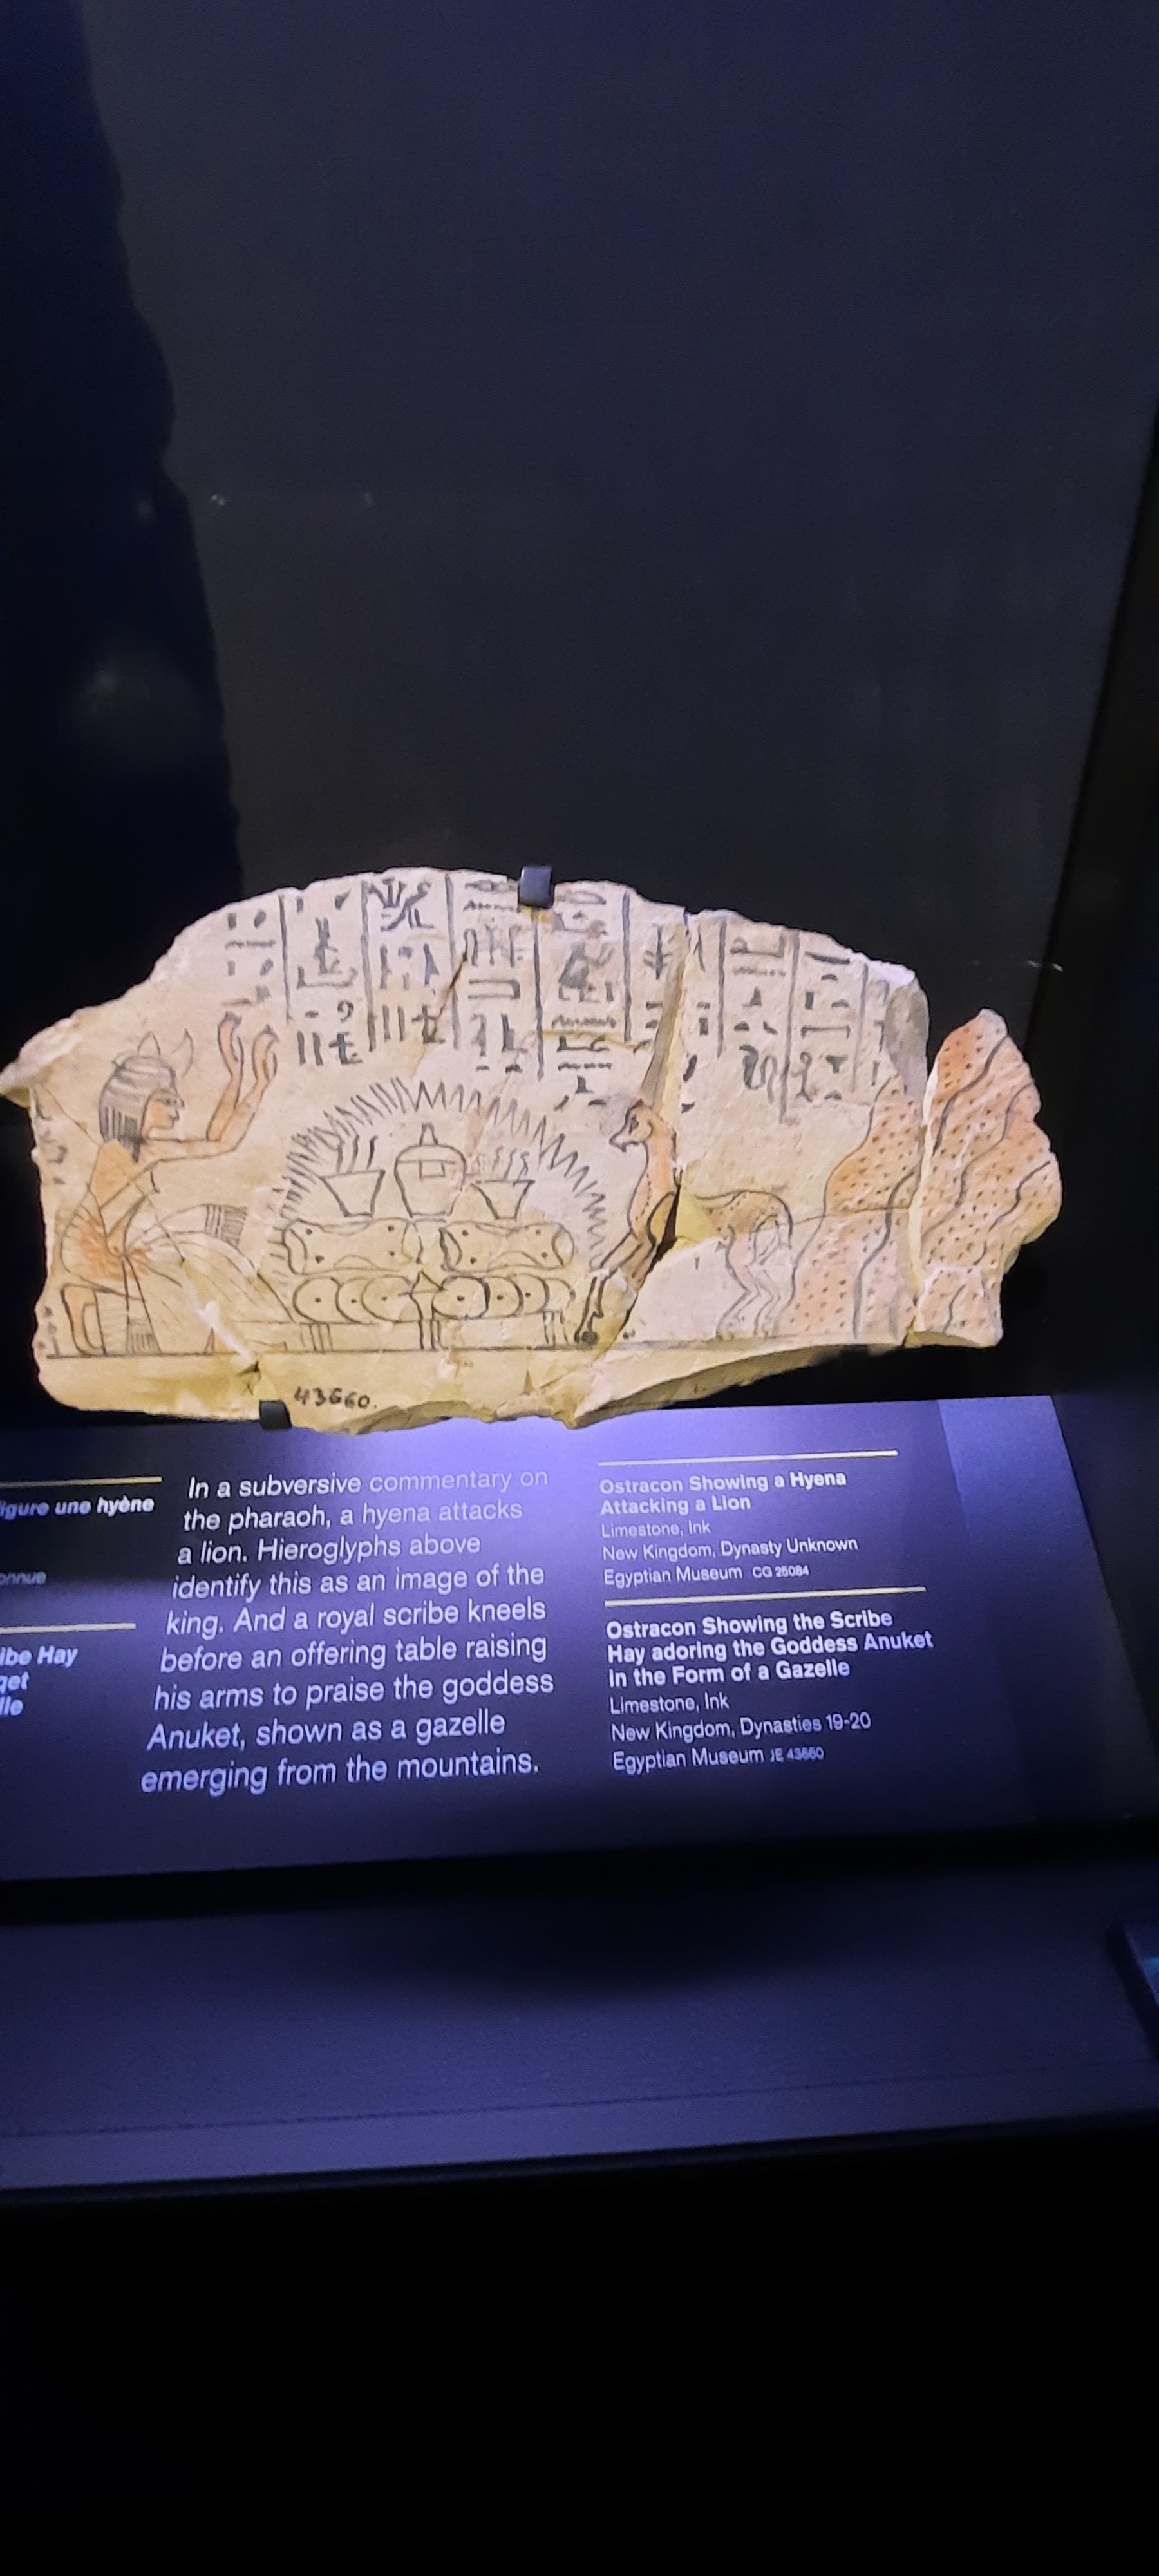 43660.
igure une hyène
onnue
ibe Hay
get
lle
In a subversive commentary on
the pharaoh, a hyena attacks
a lion. Hieroglyphs above
identify this as an image of the
king. And a royal scribe kneels
before an offering table raising
his arms to praise the goddess
Anuket, shown as a gazelle
emerging from the mountains.
Ostracon Showing a Hyena
Attacking a Lion
Limestone, Ink
New Kingdom, Dynasty Unknown
Egyptian Museum CG 25084
Ostracon Showing the Scribe
Hay adoring the Goddess Anuket
in the Form of a Gazelle
Limestone, Ink
New Kingdom, Dynasties 19-20
Egyptian Museum JE 43660